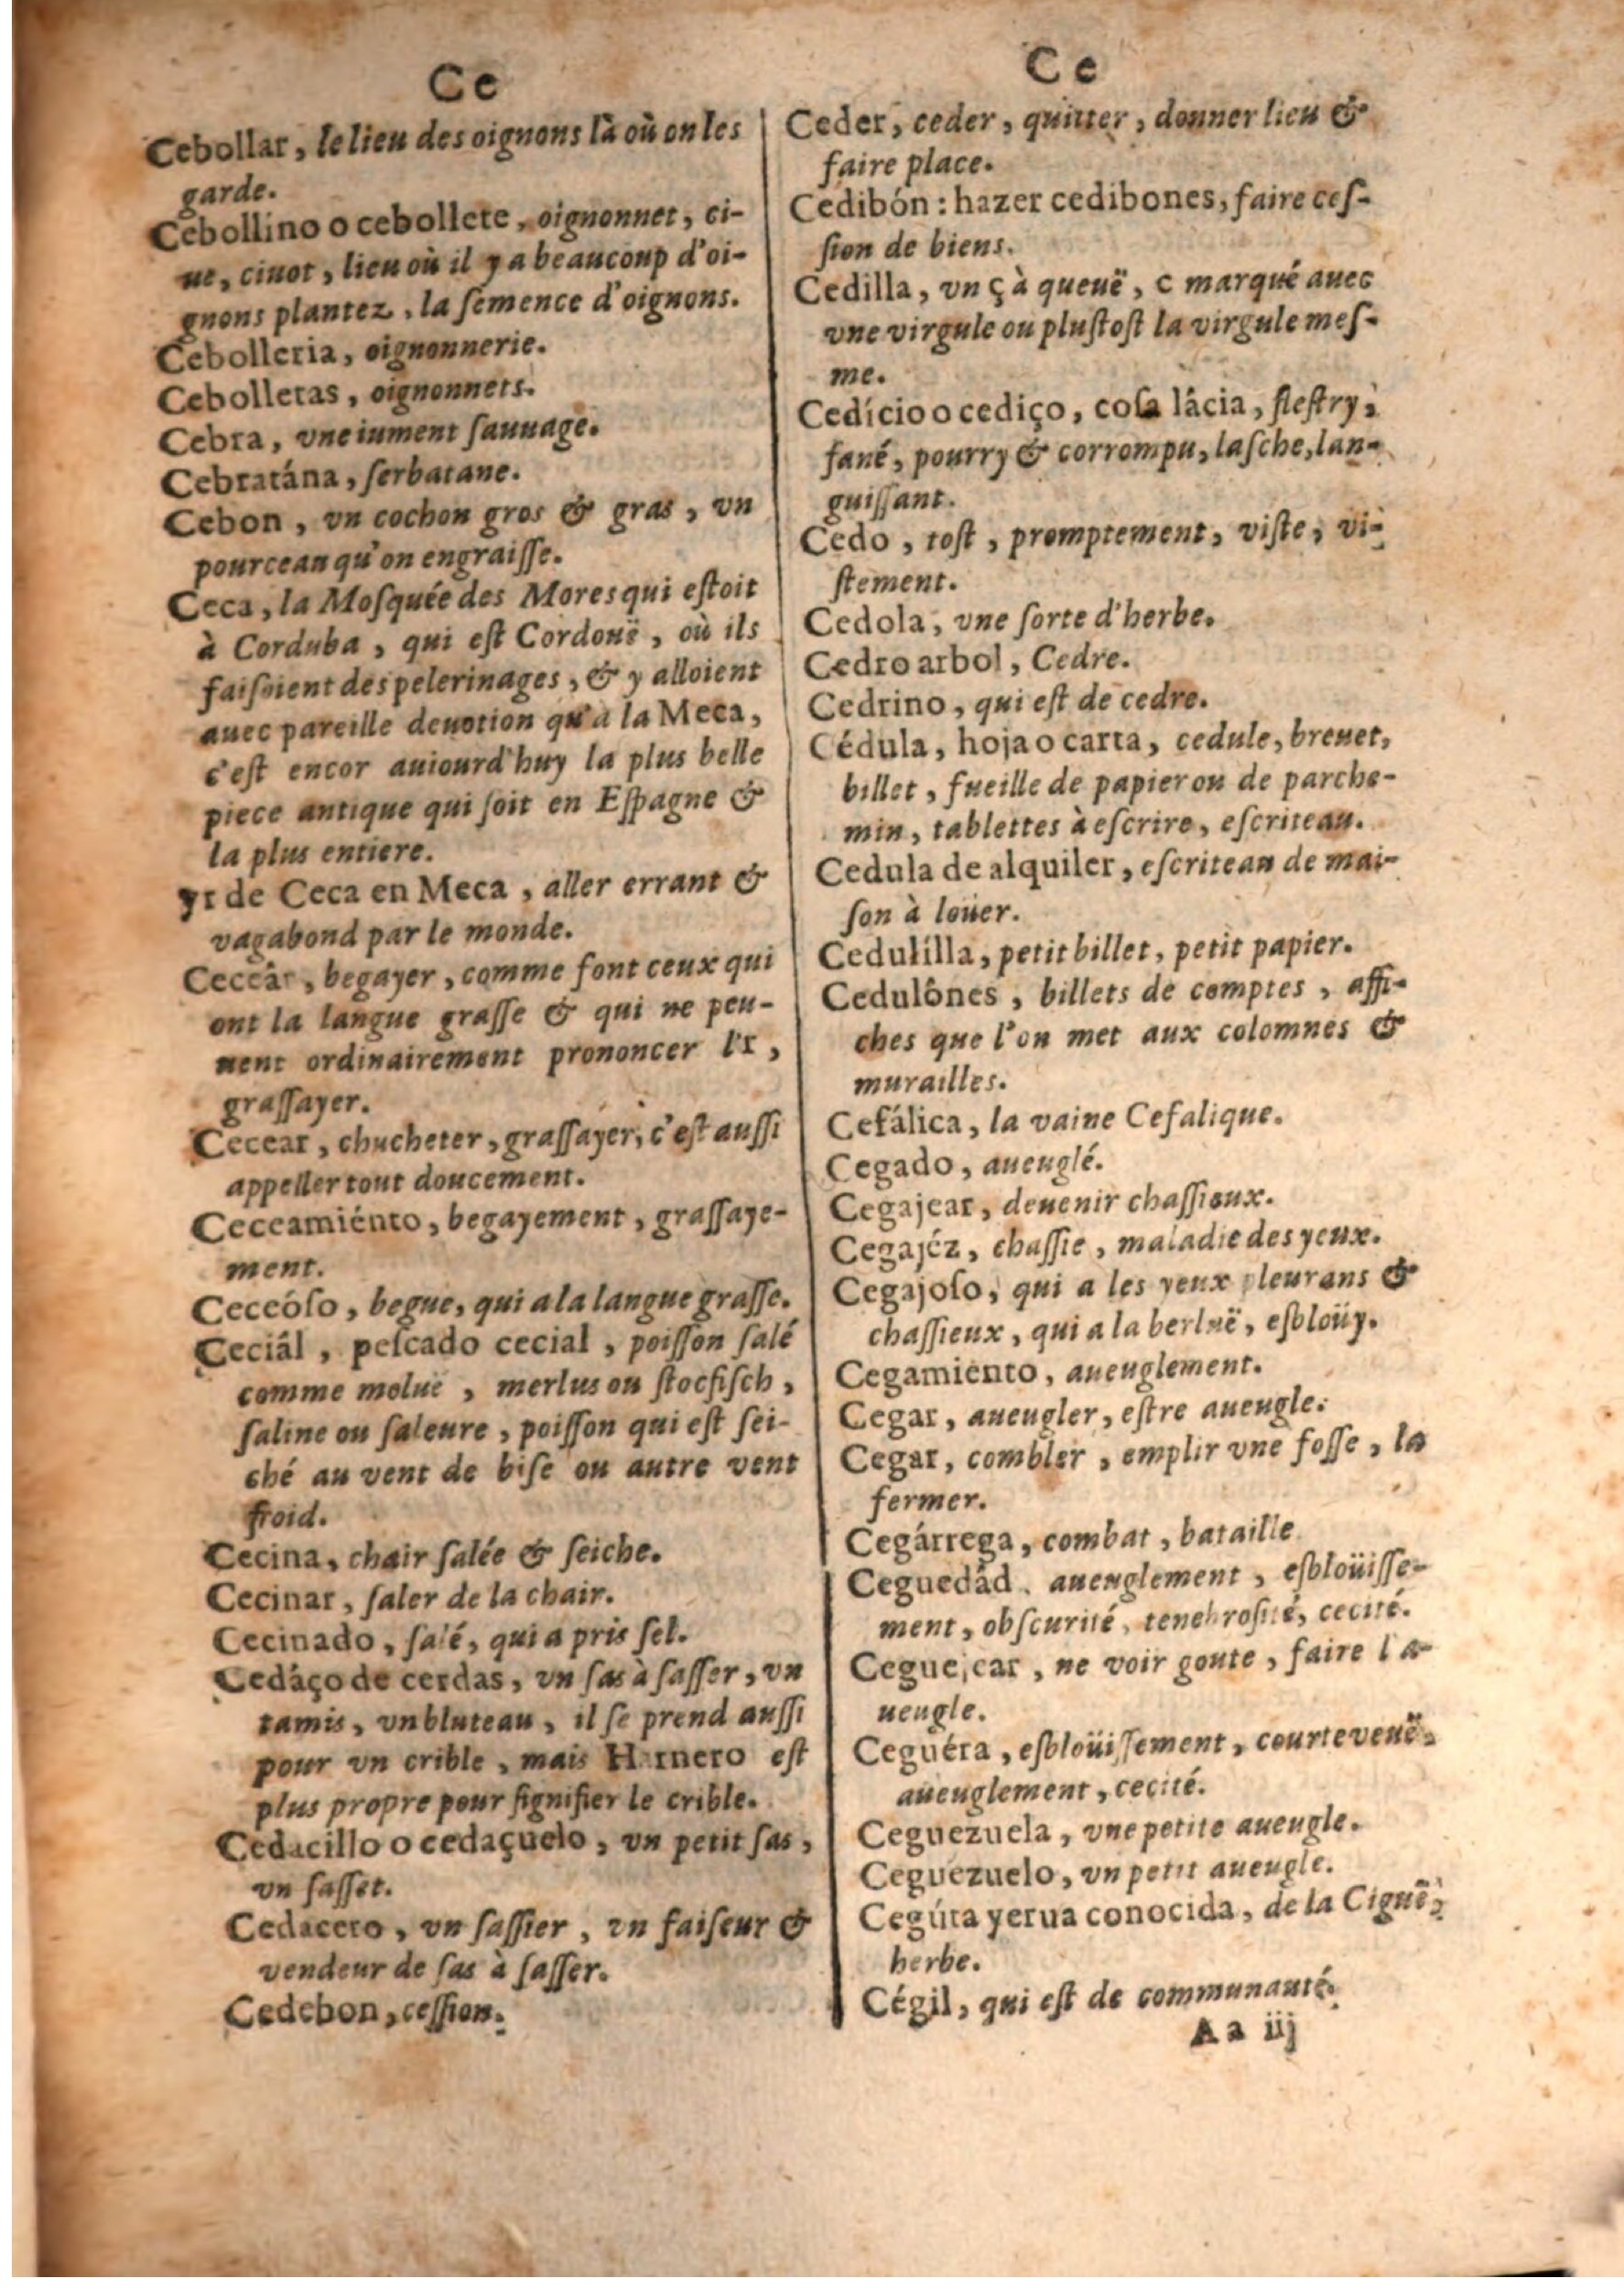 Ce
Cebollar, le lieu des oignons là où on les
garde.
Cebollino o cebollete, oignonnet, ci-
ue, ciuot, lieu où il y a beaucoup d'oi-
gnons plantez, la ſemence d'oignons.
Cebolleria, oignonnerie.
Cebolletas, oignonnets.
Cebra, vne iument ſauuage.
Cebratána, ſerbatane.
Cebon, vn cochon gros & gras, vn
pourceau qu'on engraiſſe.
Ceca, la Moſquée des Mores qui eſtoit
à Corduba, qui eſt Cordouë, où ils
faiſoient des pelerinages, & y alloient
auec pareille deuotion qu'à la Meca,
c'eſt encor auiourd'huy la plus belle
piece antique qui ſoit en Eſpagne &
la plus entiere.
yr de Ceca en Meca, aller errant &
vagabond par le monde.
Ceceâr, begayer, comme font ceux qui
ont la langue graſſe & qui ne peu-
uent ordinairement prononcer l'r,
graſſayer.
Cecear, chucheter, graſſayer, c'eſt auſſi
appeller tout doucement.
Ceceamiénto, begayement, graſſaye-
ment.
Ceceóſo, begue, qui a la langue graſſe.
Ceciâl, peſcado cecial, poiſſon ſalé
comme molue, merlus ou ſtocfiſch,
ſaline ou ſaleure, poiſſon qui eſt ſei-
ché au vent de biſe ou autre vent
froid.
Cecina, chair ſalée & ſeiche.
Cecinar, ſaler de la chair.
Cecinado, ſalé, qui a pris ſel.
Cedáço de cerdas, vn ſas à ſaſſer, vn
tamis, vn bluteau, il ſe prend auſſi
pour vn crible, mais Harnero eſt
plus propre pour ſignifier le crible.
Cedacillo o cedaçuelo, vn petit ſas,
vn ſaſſet.
Cedacero, vn ſaſſier, vn faiſeur &
vendeur de ſas à ſaſſer.
Cedebon, ceſſion.
Ce
Ceder, ceder, quitter, donner lieu &
faire place.
Cedibón: hazer cedibones, faire ceſ-
ſion de biens.
Cedilla, vn ç à queuë, c marqué auec
vne virgule ou pluſtoſt la virgule meſ-
me.
Cedício o cediço, coſa lácia, fleſtry,
fané, pourry & corrompu, laſche, lan-
guiſſant.
Cedo, toſt, promptement, viſte, vi-
ſtement.
Cedola, vne ſorte d'herbe.
Cedro arbol, Cedre.
Cedrino, qui eſt de cedre.
Cédula, hoja o carta, cedule, breuet,
billet, fueille de papier ou de parche-
min, tablettes à eſcrire, eſcriteau.
Cedula de alquiler, eſcriteau de mai-
ſon à loüer.
Cedulílla, petit billet, petit papier.
Cedulônes, billets de comptes, affi-
ches que l'on met aux colomnes &
murailles.
Cefálica, la vaine Cefalique.
Cegado, aueuglé.
Cegajear, deuenir chaſſieux.
Cegajéz, chaſſie, maladie des yeux.
Cegajoſo, qui a les yeux pleurans &
chaſſieux, qui a la berluë, eſbloüy.
Cegamiento, aueuglement.
Cegar, aueugler, eſtre aueugle.
Cegar, combler, emplir vne foſſe, la
fermer.
Cegárrega, combat, bataille
Ceguedâd, aueuglement, eſbloüiſſe-
ment, obſcurité, tenebroſité, cecité.
Ceguejear, ne voir goute, faire l'a-
ueugle.
Ceguéra, eſbloüiſſement, courte veuë,
aueuglement, cecité.
Ceguezuela, vne petite aueugle.
Ceguezuelo, vn petit aueugle.
Cegúta yerua conocida, de la Ciguë,
herbe.
Cégil, qui eſt de communauté.
Aa iij